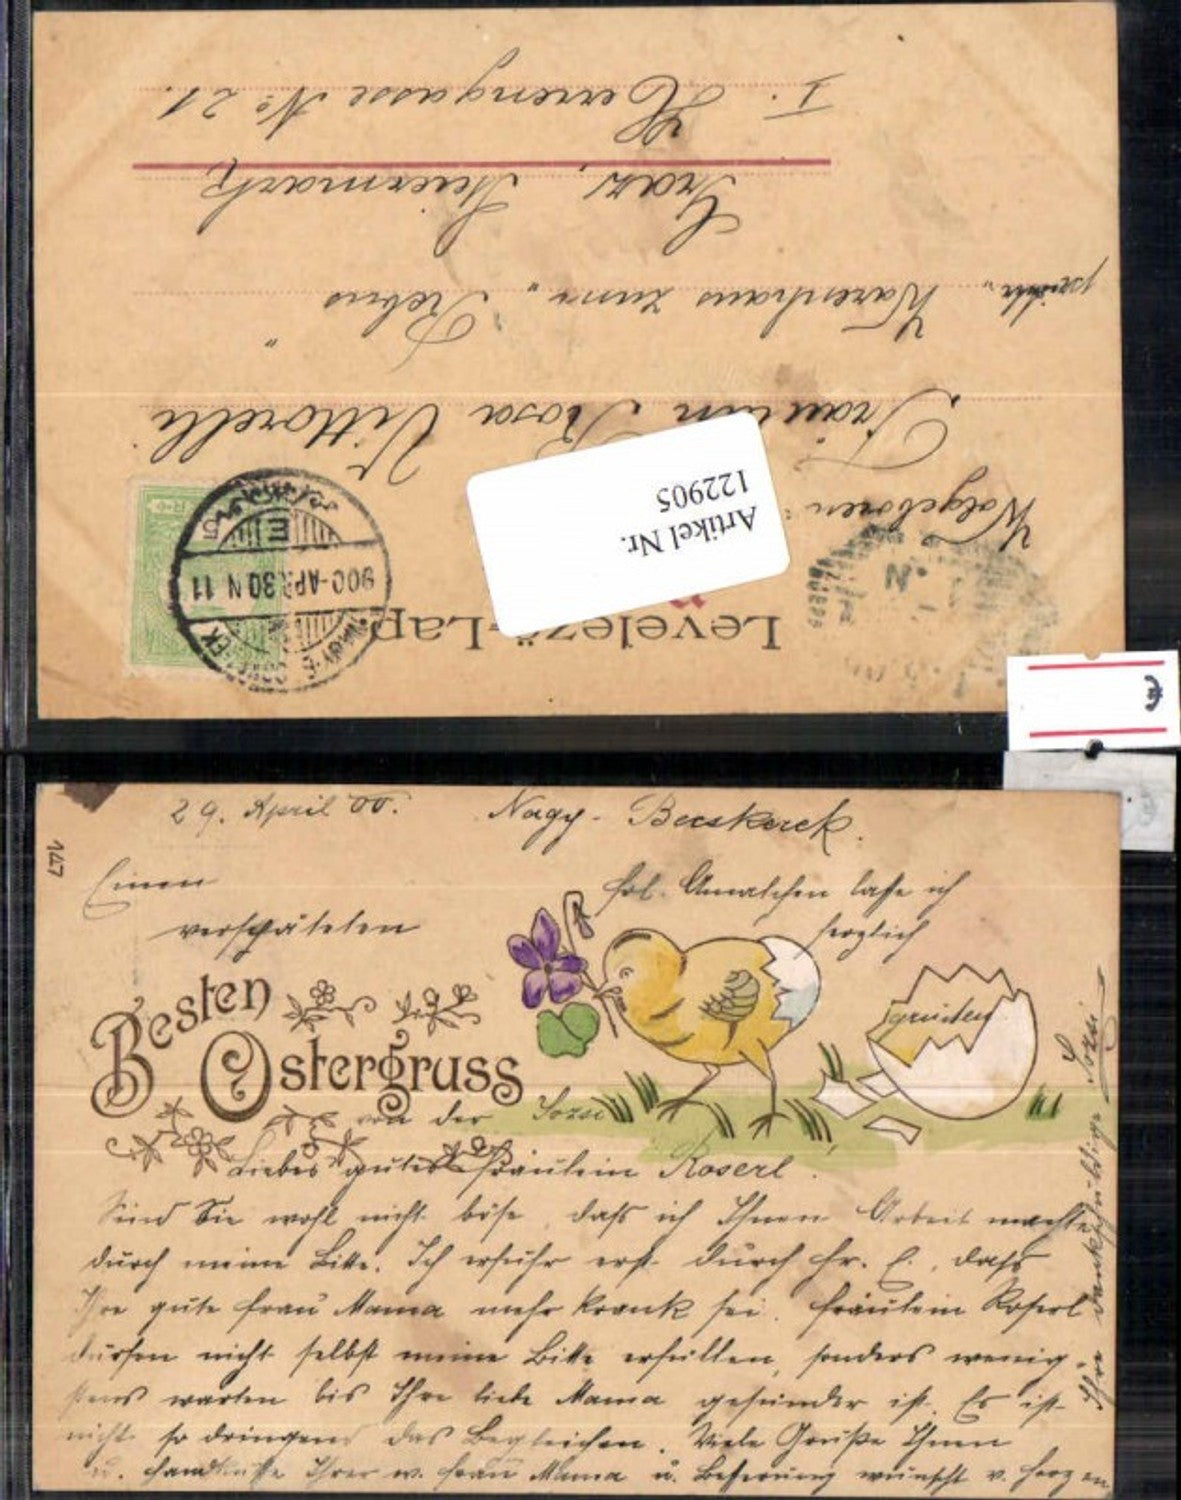 Levelező-Lap
Artikel Nr.
122905
Wolgeboren:
Fräulein Rosa Vittorelli
Warenhaus zum „Rebus“
Graz, Steiermark
I. Herrengasse No 21.
900-APR.30 N 11
5
147
29. April 00. Nagy-Becskerek.
Einen
verspäteten
Besten
Ostergruss
von der Sozsi
frl. Amalchen lasse ich
herzlich
grüßen
Liebes gutes Fräulein Roserl.
Sind Sie wohl nicht böse, dass ich Ihnen Arbeit machte
durch meine Bitte. Ich erfuhr erst durch Fr. E., dass
Ihre gute Frau Mama mehr krank sei. Fräulein Roserl
dürfen nicht selbst meine Bitte erfüllen, sonders wenig-
stens warten bis Ihre liebe Mama gesünder ist. Es ist
nicht so dringend das Begleichen. Viele Grüße Ihnen
u. Handküsse Ihrer w. Frau Mama u. Besserung wünscht v. Herzen
Ihre dankschuldige Sozsi